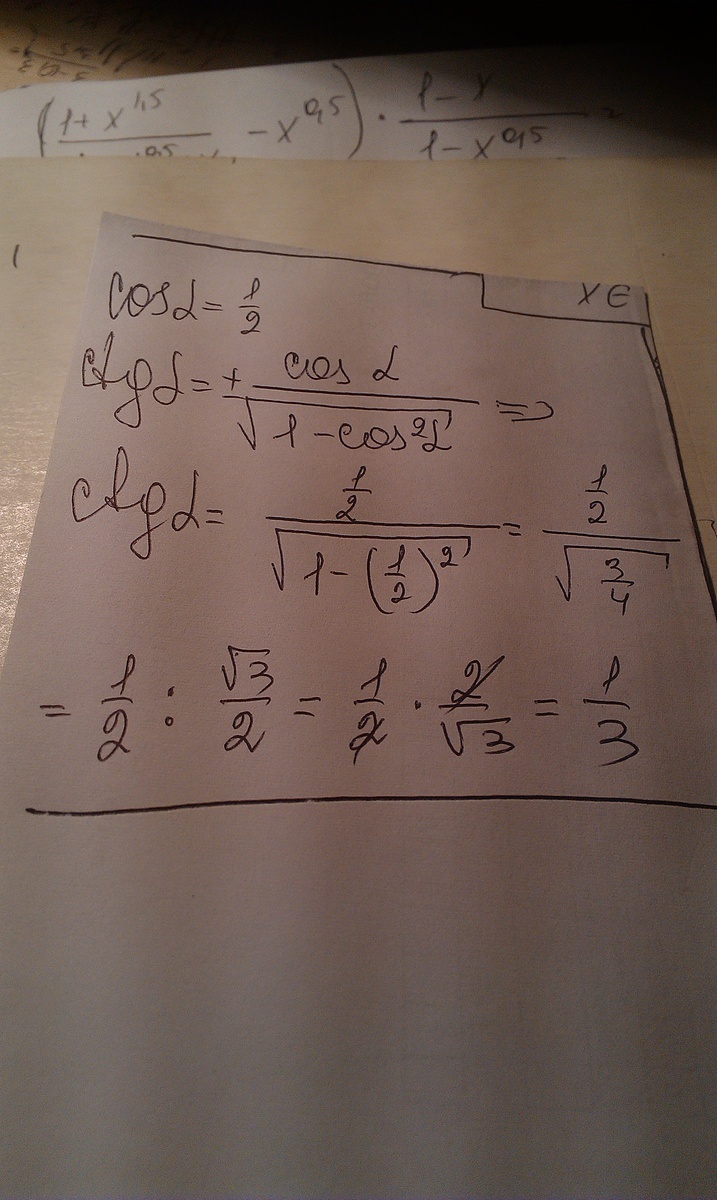 (1+x^1,5 / ^0,5 - x^0,5) · 1-x / 1-x^0,5 =
x ∈
cos α = 1/2
ctg α = ± cos α / √(1-cos²α) =>
ctg α = 1/2 / √(1-(1/2)²) = 1/2 / √(3/4)
= 1/2 : √3/2 = 1/2 · 2/√3 = 1/3